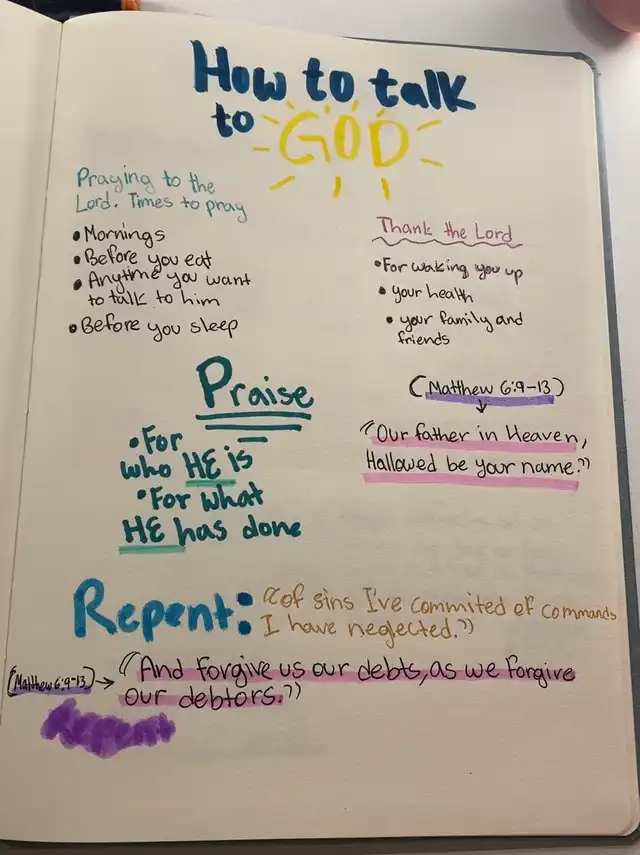 How to talk
to GOD
Praying to the
Lord. Times to pray
• Mornings
• Before you eat
• Anytime you want
to talk to him
• Before you sleep
Thank the Lord
• For waking you up
• your health
• your family and
friends
Praise
• For
who HE is
• For what
HE has done
(Matthew 6:9-13)
"Our father in Heaven,
Hallowed be your name."
Repent: "of sins I've commited of commands
I have neglected."
(Matthew 6:9-13) → "And forgive us our debts, as we forgive
our debtors."
Repent